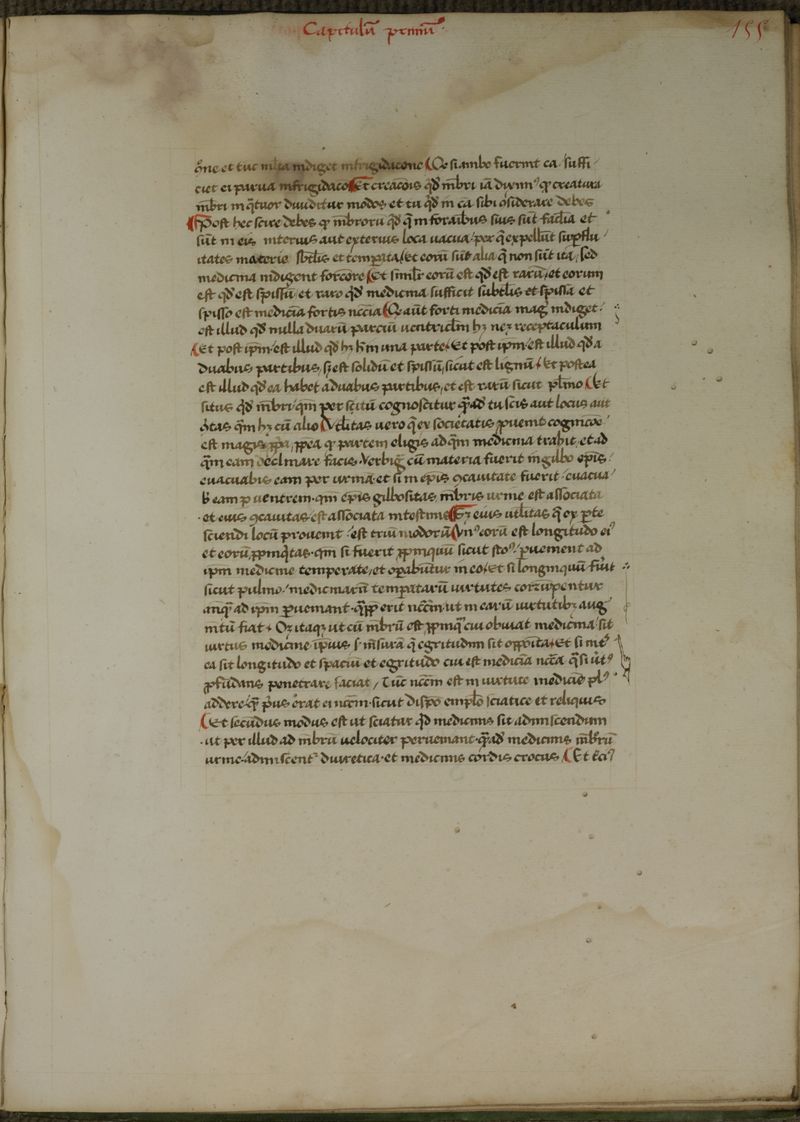 Capitulũ primũ
155
õne et tuc mĩa indiget infrigidacõne Qe si ambo fuerint ca suffi
ciet ei parua infrigidaco Et creacõis qđ mẽbri iã diximꝰ qꝫ creatura
mẽbri in q̃tuor diuiditur modos et tu qđ in ea sibi ɔsiderare debes
Post hec scire debes qꝫ mẽbrorũ qđ q̃ in foraĩbus suis sũt facĩa et
sũt in eis interius aut exterius loca uacua per q̃ expellũt suꝑflu
itates materie sbtles et temꝑata et eorũ sũt alia q̃ non sũt ita sed
medicina indigent forciore Et similr eorũ est qđ est rarũ et eorum
est qđ est spissũ et raro qđ medicina sufficit subtlis et spissa et
spisso est medicĩa fortis nccĩa Qe aũt forti medicĩa mag indiget
est illud qđ nulla duarũ parciũ uentriclm hꝫ neqꝫ receptaculum
Et post ipm est illud qđ hꝫ hm una parte Et post ipm est illud qđ a
duabus partibus sꝫ est solidũ et spissũ sicut est lignũ Et postea
est illud qđ ea habet a duabus partibus et est rarũ sicut plmo Et
situs qđ mẽbri qm per scitũ cognoscitur quẽad tu scis aut locus aut
ɔitas qm hꝫ cũ alio Vtlitas uero q̃ ex societatis ꝓuenit cognicõe
est magis ꝓpea qꝫ partem eligis ad q̃m medicina trahit et ad
q̃m eam declinare facis Verbi g cũ materia fuerit in gilbo epĩs
euacuabis eam per urinã et si in epĩs ɔcauitate fuerit euacua
b eam ꝑ uentrem qm epĩs gilbositas mẽbris urine est associata
et eius ɔcauitas est associata intestinis Sꝫ eius utlitas q̃ ex ꝑte
sciendi locũ prouenit est triũ modorũ Vnꝰ eorũ est longitudo eiꝰ
et eorũ ꝓpinq̃tas qm si fuerit ꝓpinquũ sicut stoꝰ ꝑuenient ad
ipm medicine temperate et oꝑabũtur in eo et si longinquũ fuit
sicut pulmo medicinarũ temꝑatarũ uirtutes corrũpentur
anq̃ ad ipm ꝑueniant q̃ꝓꝑ erit nccm ut in earũ uirtutibꝫ aug
mtũ fiat Oꝫ itaqꝫ ut cũ mẽbrũ est ꝓpinqꝫ cui obuiat medicina sit
uirtus medicine ipius s mẽsurã q̃ egritudini sit opposita Et si int
ea sit longitudo et spaciũ et egritudo cui est medicĩa nccã q̃ si utꝰ
ꝓfũdans penetrare faciat tũc nccm est in uirtute medicĩe plꝰ
addere q̃ pus erat ei nccm sicut dispo emplõ sciatice et reliquis
Et secũdus modus est ut sciatur qđ medicinis sit admiscendum
ut per illud ad mẽbrũ uelociter perueniant quẽad medicinis mẽbrũ
urine admiscent diuretica et medicinis cordis crocus Et tciꝰ